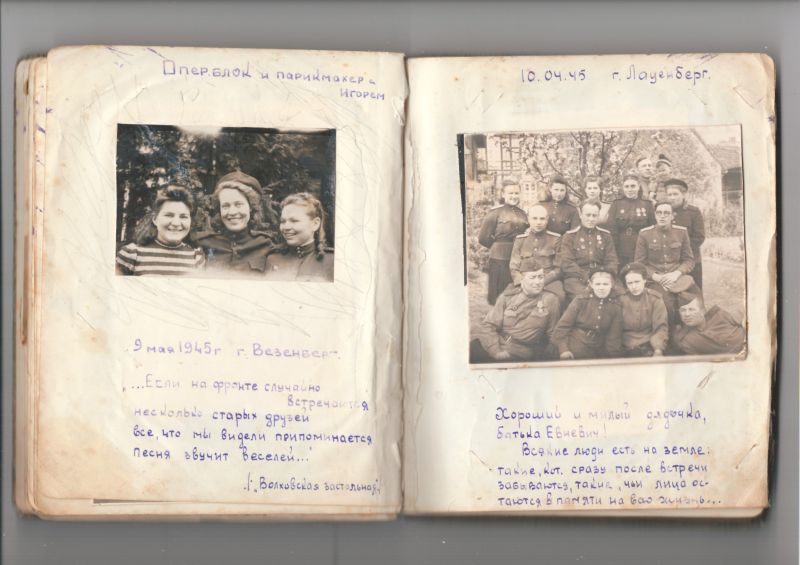 Опер.блок и парикмахер с
Игорем
9 мая 1945г г. Везенберг.
„...Если на фронте случайно
встречаются
несколько старых друзей
все, что мы видели припоминается
Песня звучит веселей..."
/„Волховская застольная"/
10.04.45 г. Лауенберг.
Хороший и милый дядечка,
батька Евневич!
Всякие люди есть на земле:
такие, кот. сразу после встречи
забываются, такие, чьи лица ос-
таются в памяти на всю жизнь...